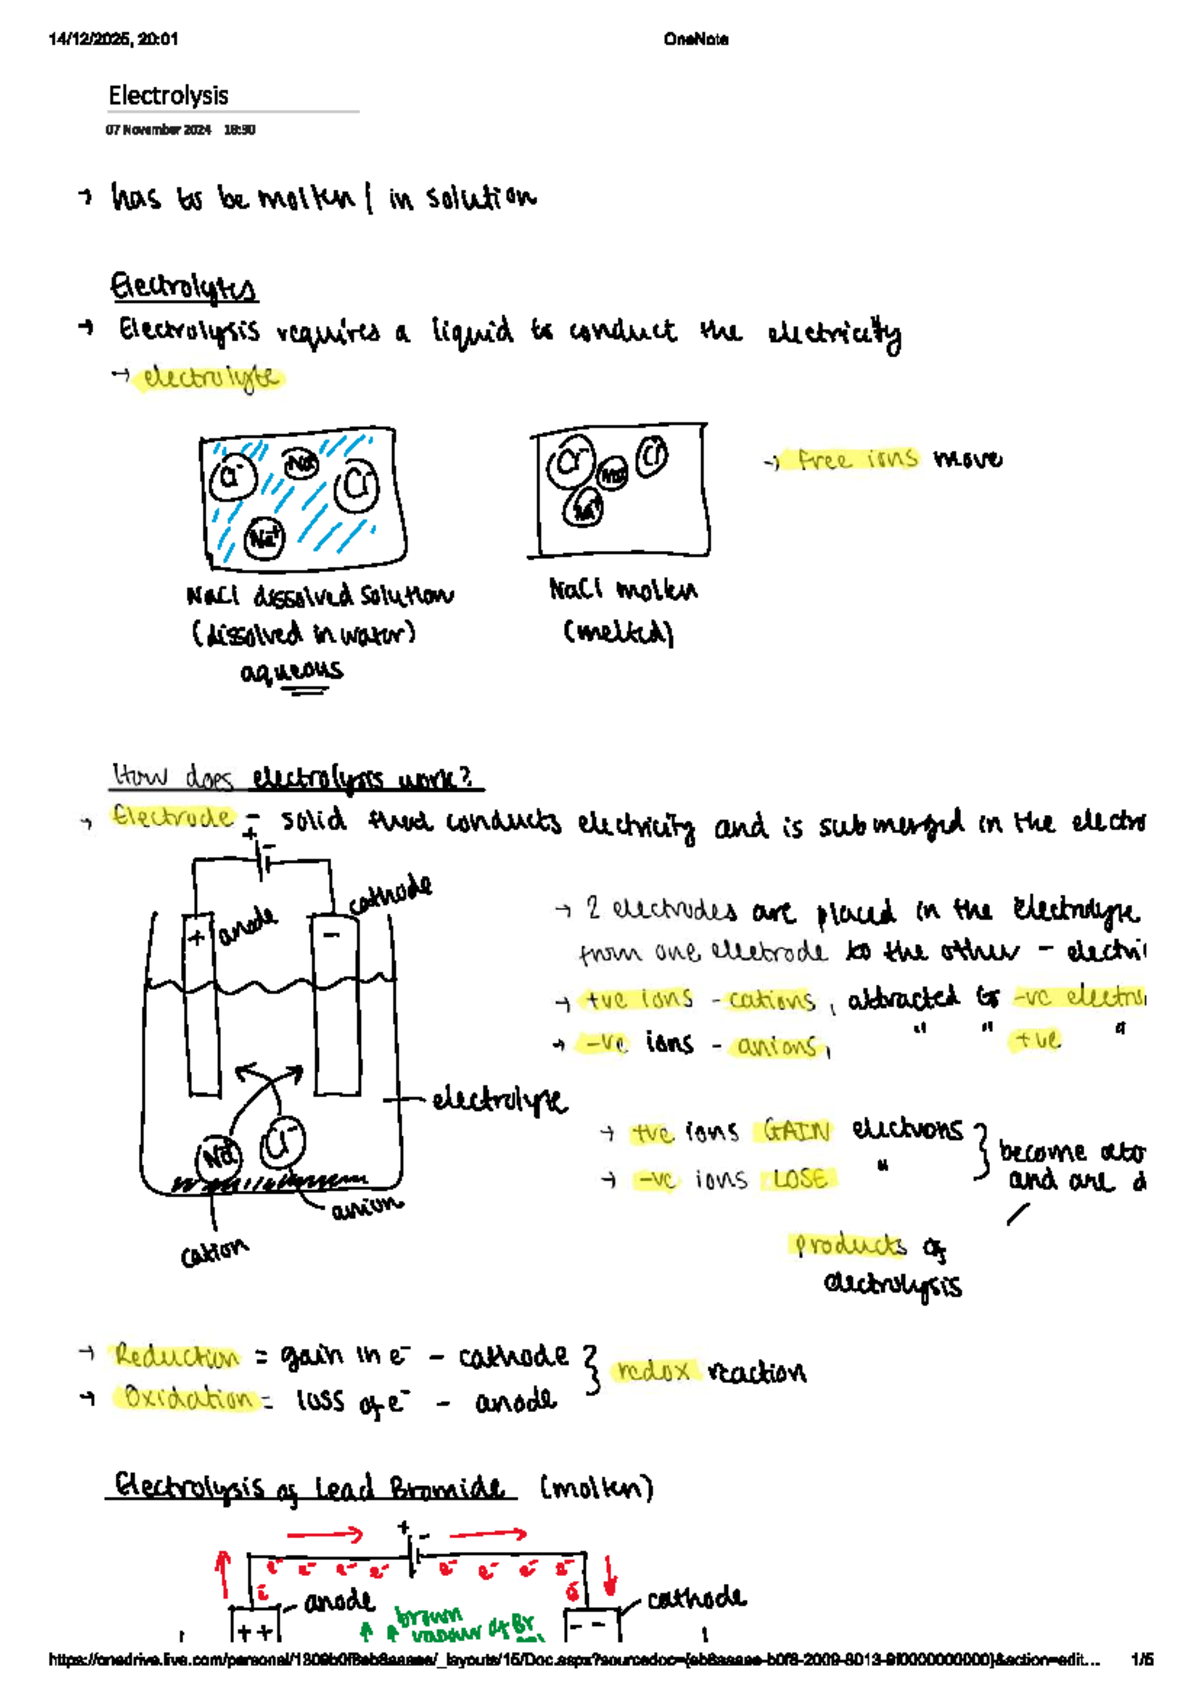 14/12/2025, 20:01
OneNote
Electrolysis
07 November 2024 18:30
→ has to be molten / in solution
Electrolytes
→ Electrolysis requires a liquid to conduct the electricity
→ electrolyte
Cl⁻ Na⁺ Cl⁻ Na⁺
Cl⁻ Na⁺ Cl⁻ Na⁺
→ free ions move
NaCl dissolved solution
(dissolved in water)
aqueous
NaCl molten
(melted)
How does electrolysis work?
→ Electrode - solid that conducts electricity and is submerged in the electro
+ -
anode
cathode
+ -
→ 2 electrodes are placed in the electrolyte
from one electrode to the other - electri
→ +ve ions - cations, attracted to -ve electro
→ -ve ions - anions, " " +ve "
electrolyte
Na⁺ Cl⁻
anion
cation
→ +ve ions GAIN electrons } become ato
→ -ve ions LOSE " and are d
products of
electrolysis
→ Reduction = gain in e⁻ - cathode } redox reaction
→ Oxidation = loss of e⁻ - anode
Electrolysis of Lead Bromide (molten)
+ -
e⁻ e⁻ e⁻ e⁻ e⁻ e⁻ e⁻ e⁻
e⁻ e⁻
anode
cathode
+ +
- -
brown
vapour of Br
1/5